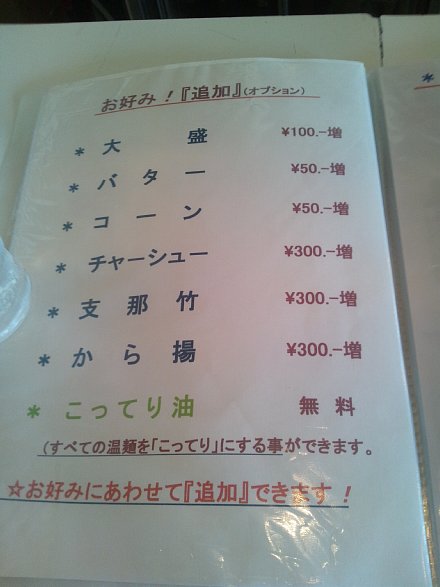 お好み！『追加』(オプション)
* 大盛 ¥100.-増
* バター ¥50.-増
* コーン ¥50.-増
* チャーシュー ¥300.-増
* 支那竹 ¥300.-増
* から揚 ¥300.-増
* こってり油 無料
(すべての温麺を「こってり」にする事ができます。
☆お好みにあわせて『追加』できます！
*